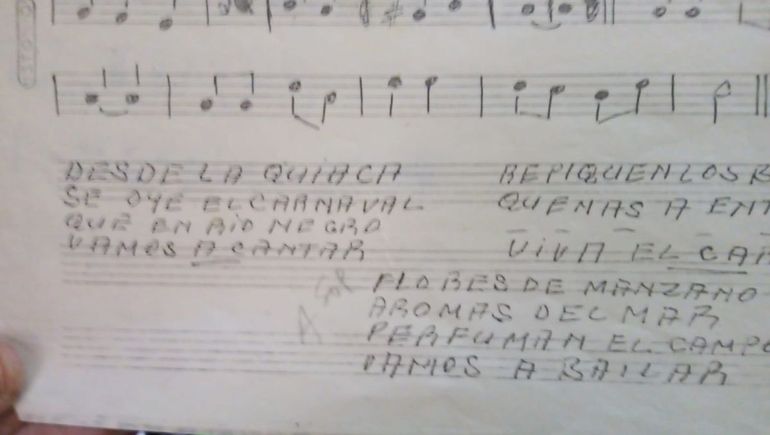 DESDE LA QUIACA
SE OYE EL CARNAVAL
QUE EN RIO NEGRO
VAMOS A CANTAR
REPIQUEN LOS B
QUENAS A ENT
VIVA EL CAR
FLORES DE MANZANO
AROMAS DEL MAR
PERFUMAN EL CAMPO
VAMOS A BAILAR